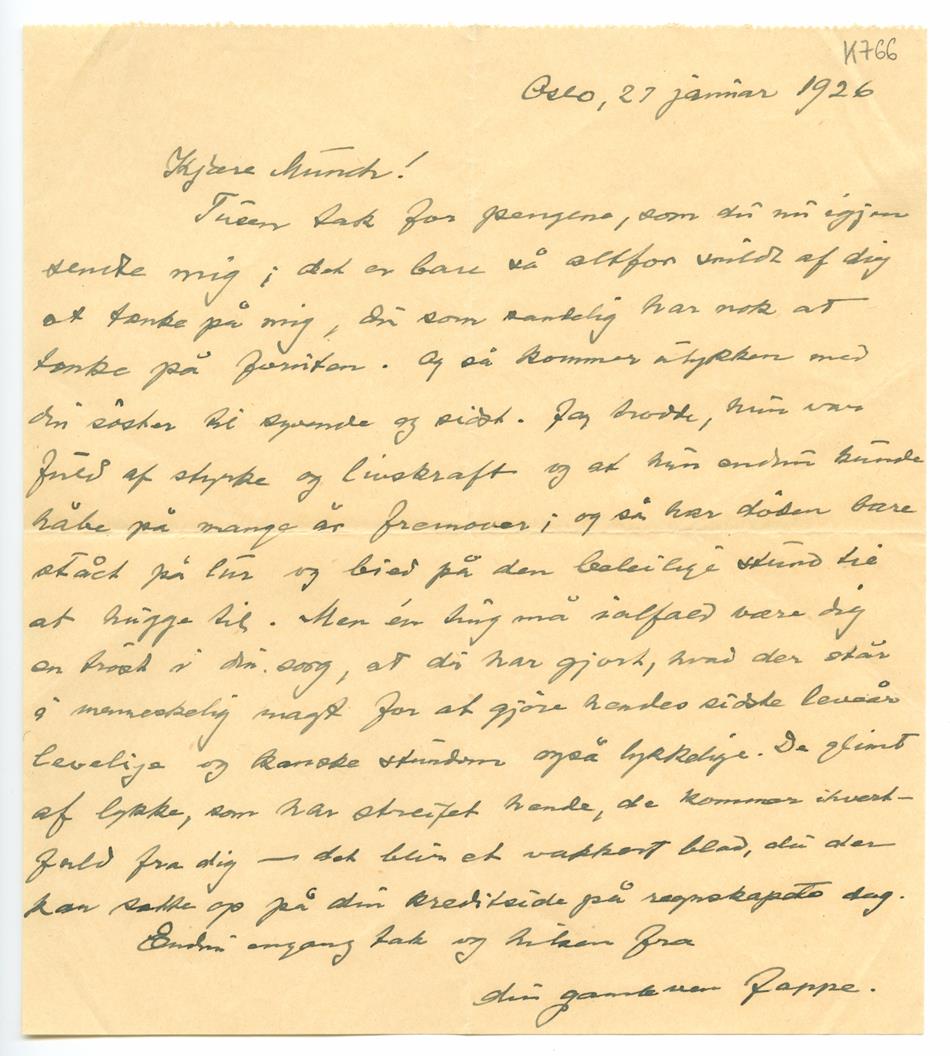 K766
Oslo, 27 januar 1926
Kjære Munch!
Tusen tak for pengene, som du nu igjen
sendte mig; det er bare så altfor snildt af dig
at tænke på mig, du som sandelig har nok at
tænke på foruten. Og så kommer ulykken med
din søster til syvende og sidst. Jeg trodde, hun var
fuld af styrke og livskraft og at hun endnu kunde
håbe på mange år fremover; og så har døden bare
stået på lur og biet på den beleilige stund til
at hugge til. Men én ting må ialfald være dig
en trøst i din sorg, at du har gjort, hvad der står
i menneskelig magt for at gjöre hendes sidste leveår
levelige og kanske stundom også lykkelige. De glimt
af lykke, som har streifet hende, de kommer ihvert-
fald fra dig — det blir et vakkert blad, du der
kan sætte op på din kreditside på regnskapets dag.
Endnu engang tak og hilsen fra
din gamle ven Jappe.